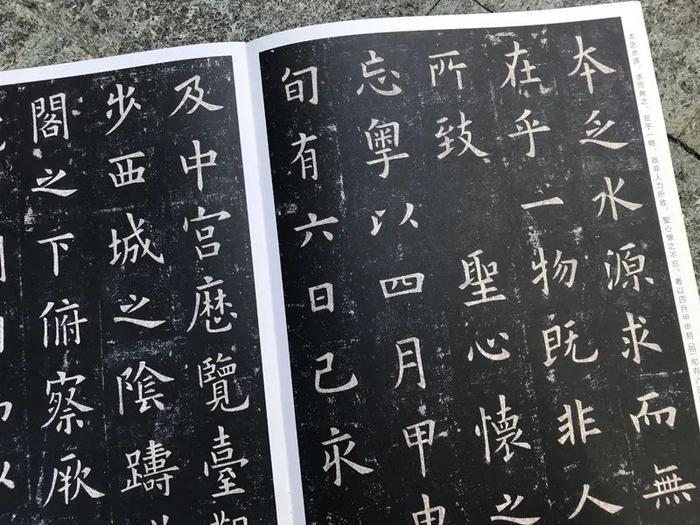 本乏水源，求而無之，在乎一物，既非人力所致，聖心懷之不忘。粵以四月甲申
本乏水源求而無
在乎一物既非人
所致 聖心懷之
忘粵以四月甲申
旬有六日己亥
及中宮歷覽臺觀
步西城之陰躊
閣之下俯察厥